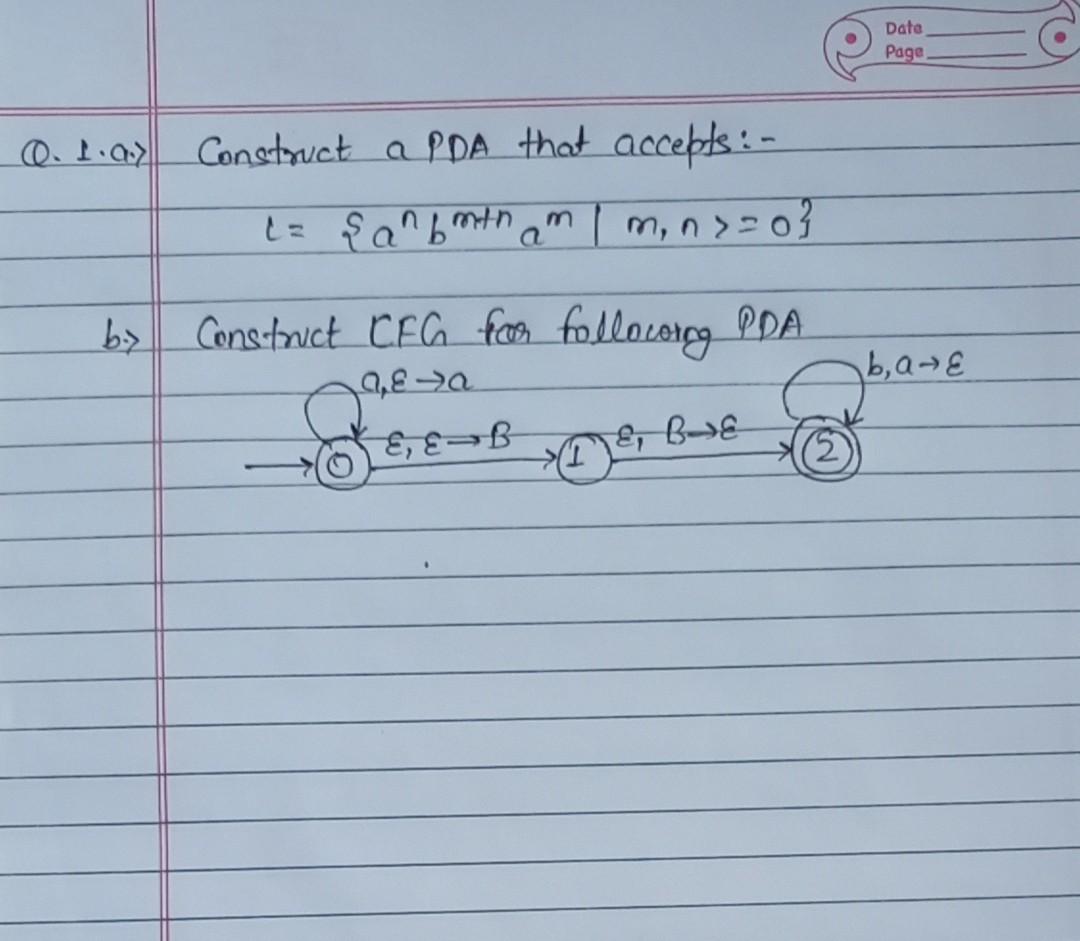 Date
Page
Q. 1. a.> Construct a PDA that accepts:-
L = {aⁿ bᵐ⁺ⁿ aᵐ | m, n >= 0}
b.> Construct CFG for following PDA
a, ε → a
b, a → ε
ε, ε → B
ε, B → ε
0 1 2